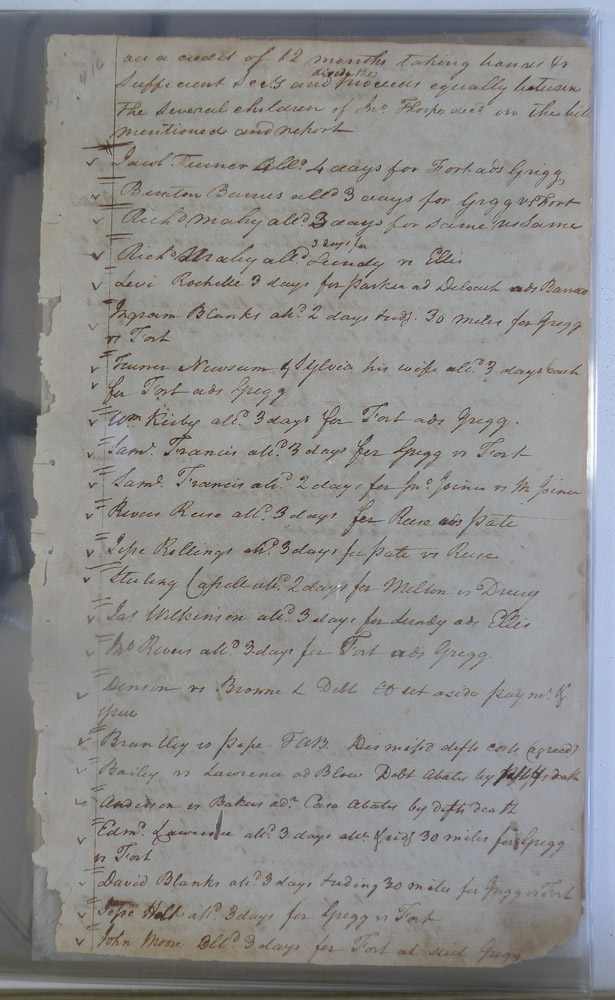 on a credit of 12 months taking bonds &
sufficient Sec.s and divide the proceeds equally between
the several children of Jno Thorpe decd in the bill
mentioned and report
Jacob Turner alld 4 days for Fort ads Grigg
Benton Barnes alld 3 days for Grgg vs Fort
Richd Mabry alld 3 days for same vs Same
Richd Mabry alld 3 days for Lundy vs Ellis
Levi Rochelle 3 days for Parker ad Deloach ads
Ingram Blanks alld 2 days 30 miles for Gregg
vs Fort
Turner Newsum & Sylvia his wife alld 3 days each
for Fort ads Gregg
Wm Kirby alld 3 days for Fort ads Gregg.
Saml Francis alld 3 days for Gregg vs Fort
Saml Francis alld 2 days for Jno Joiner vs M Joiner
Rivers Reese alld 3 days for Reese ads Pate
Rollings alld 3 days for Pate vs Reese
Sterling Capell alld 2 days for Melton vs Drury
Jas Wilkinson alld 3 days for Lundy ads Ellis
Jno Rivers alld 3 days for Fort ads Gregg
Denson vs Browne Debt set aside paymt &
Brantley vs Pope. TAB. Dismissd defts costs (agreed)
Bailey vs Lawrence ad Blow Debt Abates by death
Anderson vs Bakers adr Case Abates by defts death
Edmd Lawrence alld 3 days 30 miles for Gregg
vs Fort
David Blanks alld 3 days 30 miles for Gregg vs Fort
Holt alld 3 days for Gregg vs Fort
John Moore alld 3 days for Fort at suit Gregg